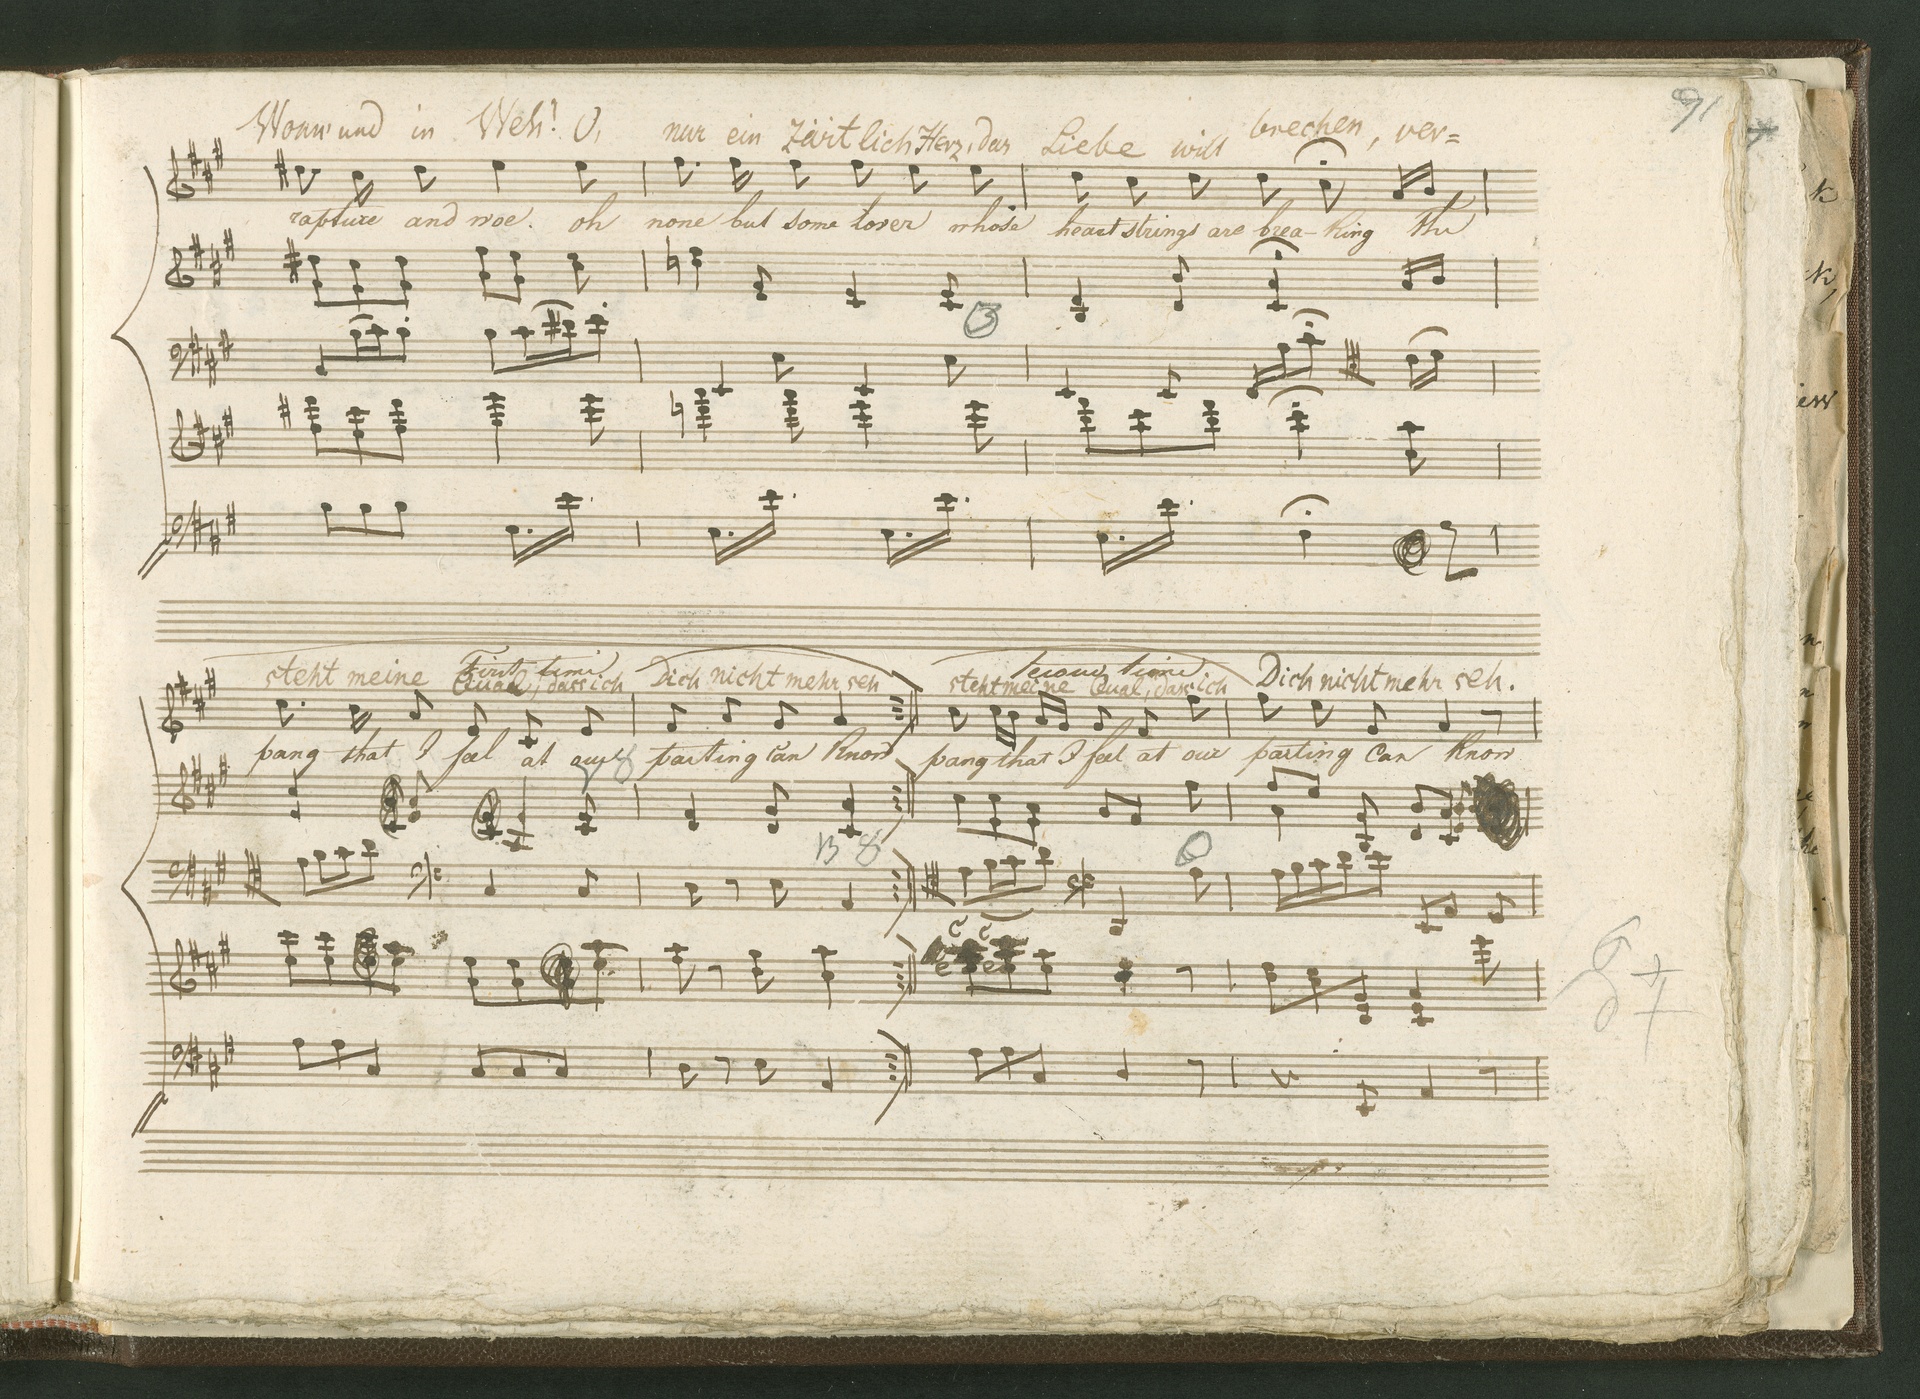 91
Wonn' und in Weh! O, nur ein zärtlich Herz, das Liebe will brechen, ver=
rapture and woe. oh none but some lover whose heart strings are brea-king the
First time
second time
steht meine Qual, dass ich Dich nicht mehr seh steht meine Qual, dass ich Dich nicht mehr seh.
pang that I feel at our parting can know pang that I feel at our parting can know